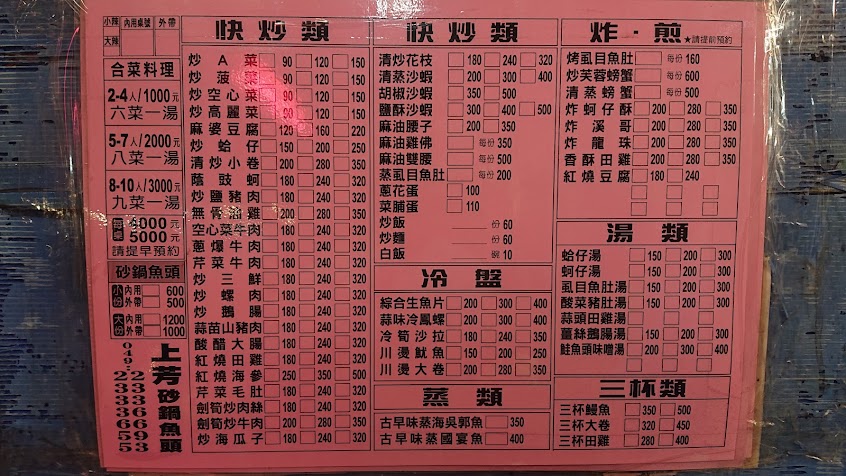 小辣 內用桌號 外帶
大辣
合菜料理
2-4人/1000元
六菜一湯
5-7人/2000元
八菜一湯
8-10人/3000元
九菜一湯
每桌 4000元
5000元
請提早預約
砂鍋魚頭
小份 內用 600
外帶 500
大份 內用 1200
外帶 1000
上芳砂鍋魚頭
049-2333659
2336693
快炒類
炒A菜 90 120 150
炒菠菜 90 120 150
炒空心菜 90 120 150
炒高麗菜 90 120 150
麻婆豆腐 120 160 220
炒蛤仔 150 200 250
清炒小卷 200 280 350
蔭豉蚵 180 240 320
炒鹽豬肉 180 240 320
無骨油雞 200 280 350
空心菜牛肉 180 240 320
蔥爆牛肉 180 240 320
芹菜牛肉 180 240 320
炒三鮮 180 240 320
炒螺肉 180 240 320
炒鵝腸 180 240 320
蒜苗山豬肉 180 240 320
酸醋大腸 180 240 320
紅燒田雞 180 240 320
紅燒海參 250 350 500
芹菜毛肚 180 240 320
劍筍炒肉絲 180 240 320
劍筍炒牛肉 200 280 350
炒海瓜子 180 240 320
快炒類
清炒花枝 180 240 320
清蒸沙蝦 200 300 400
胡椒沙蝦 350 500
鹽酥沙蝦 300 400 500
麻油腰子 200 350
麻油雞佛 每份 350
麻油雙腰 每份 500
蒸虱目魚肚 每份 200
蔥花蛋 100
菜脯蛋 110
炒飯 份 60
炒麵 份 60
白飯 碗 10
冷盤
綜合生魚片 200 300 400
蒜味冷鳳螺 200 300 400
冷筍沙拉 180 240 320
川燙魷魚 150 200 250
川燙大卷 200 280 350
蒸類
古早味蒸海吳郭魚 350
古早味蒸國宴魚 400
炸·煎 ★請提前預約
烤虱目魚肚 每份 160
炒芙蓉螃蟹 每份 600
清蒸螃蟹 每份 500
炸蚵仔酥 200 280 350
炸溪哥 200 280 350
炸龍珠 200 280 350
香酥田雞 200 280 350
紅燒豆腐 180 240
湯類
蛤仔湯 150 200 300
蚵仔湯 150 200 300
虱目魚肚湯 150 200 300
酸菜豬肚湯 150 200 300
蒜頭田雞湯 200 300
薑絲鵝腸湯 150 200 300
鮭魚頭味噌湯 200 300 400
三杯類
三杯鰻魚 350 500
三杯大卷 320 450
三杯田雞 280 400